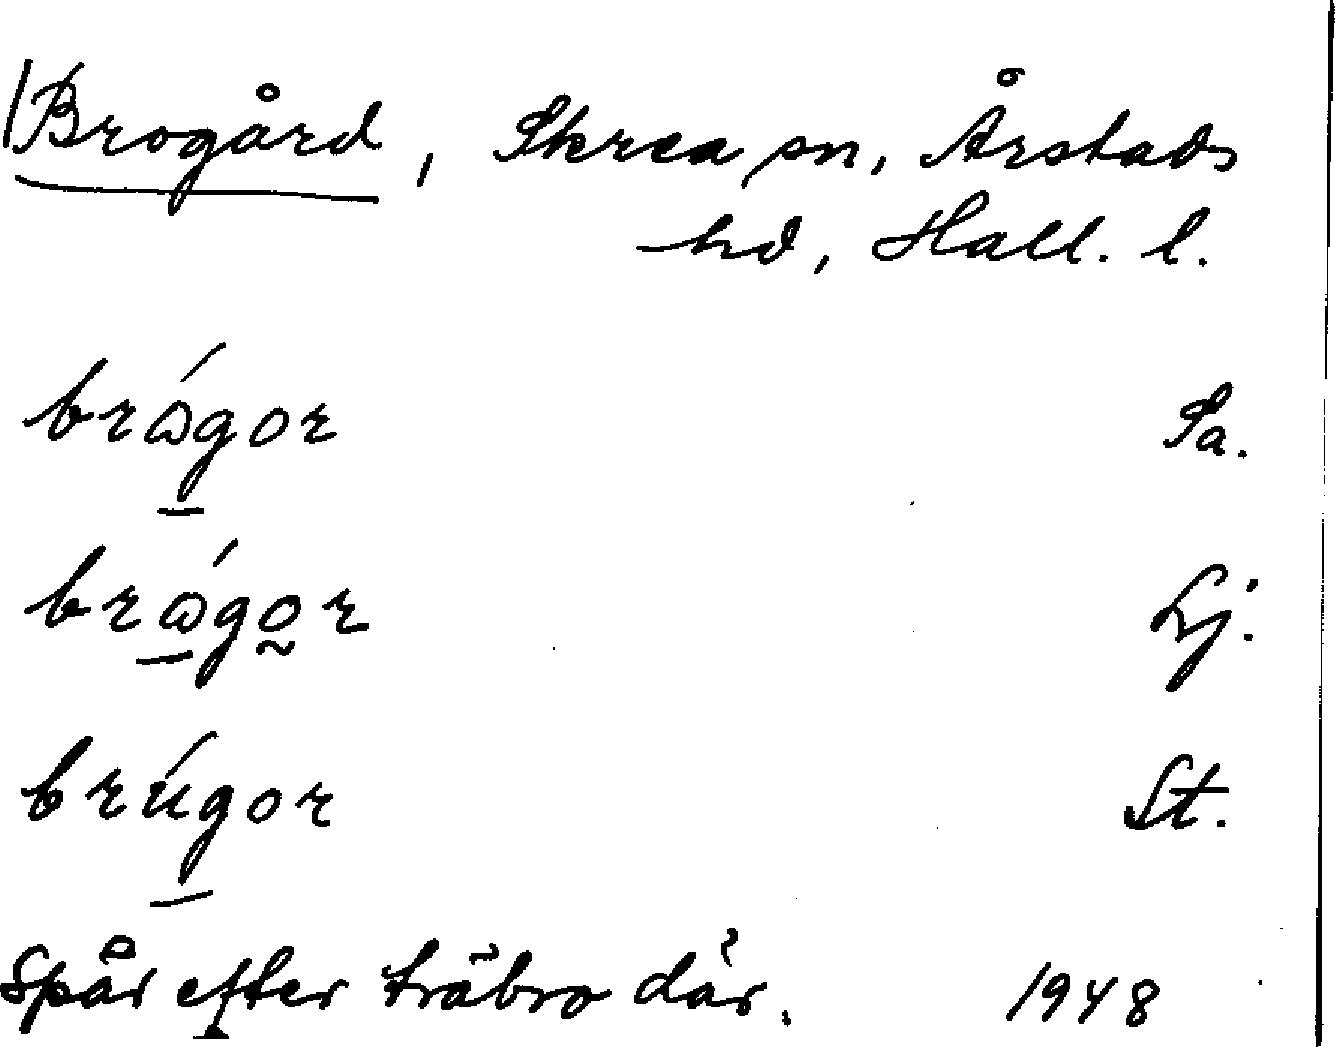 Brogård, Skrea sn, Årstads
hd, Hall. l.
brǿgor Sa.
brǿgo̰r Lj.
brúgor St.
Spår efter träbro där. 1948